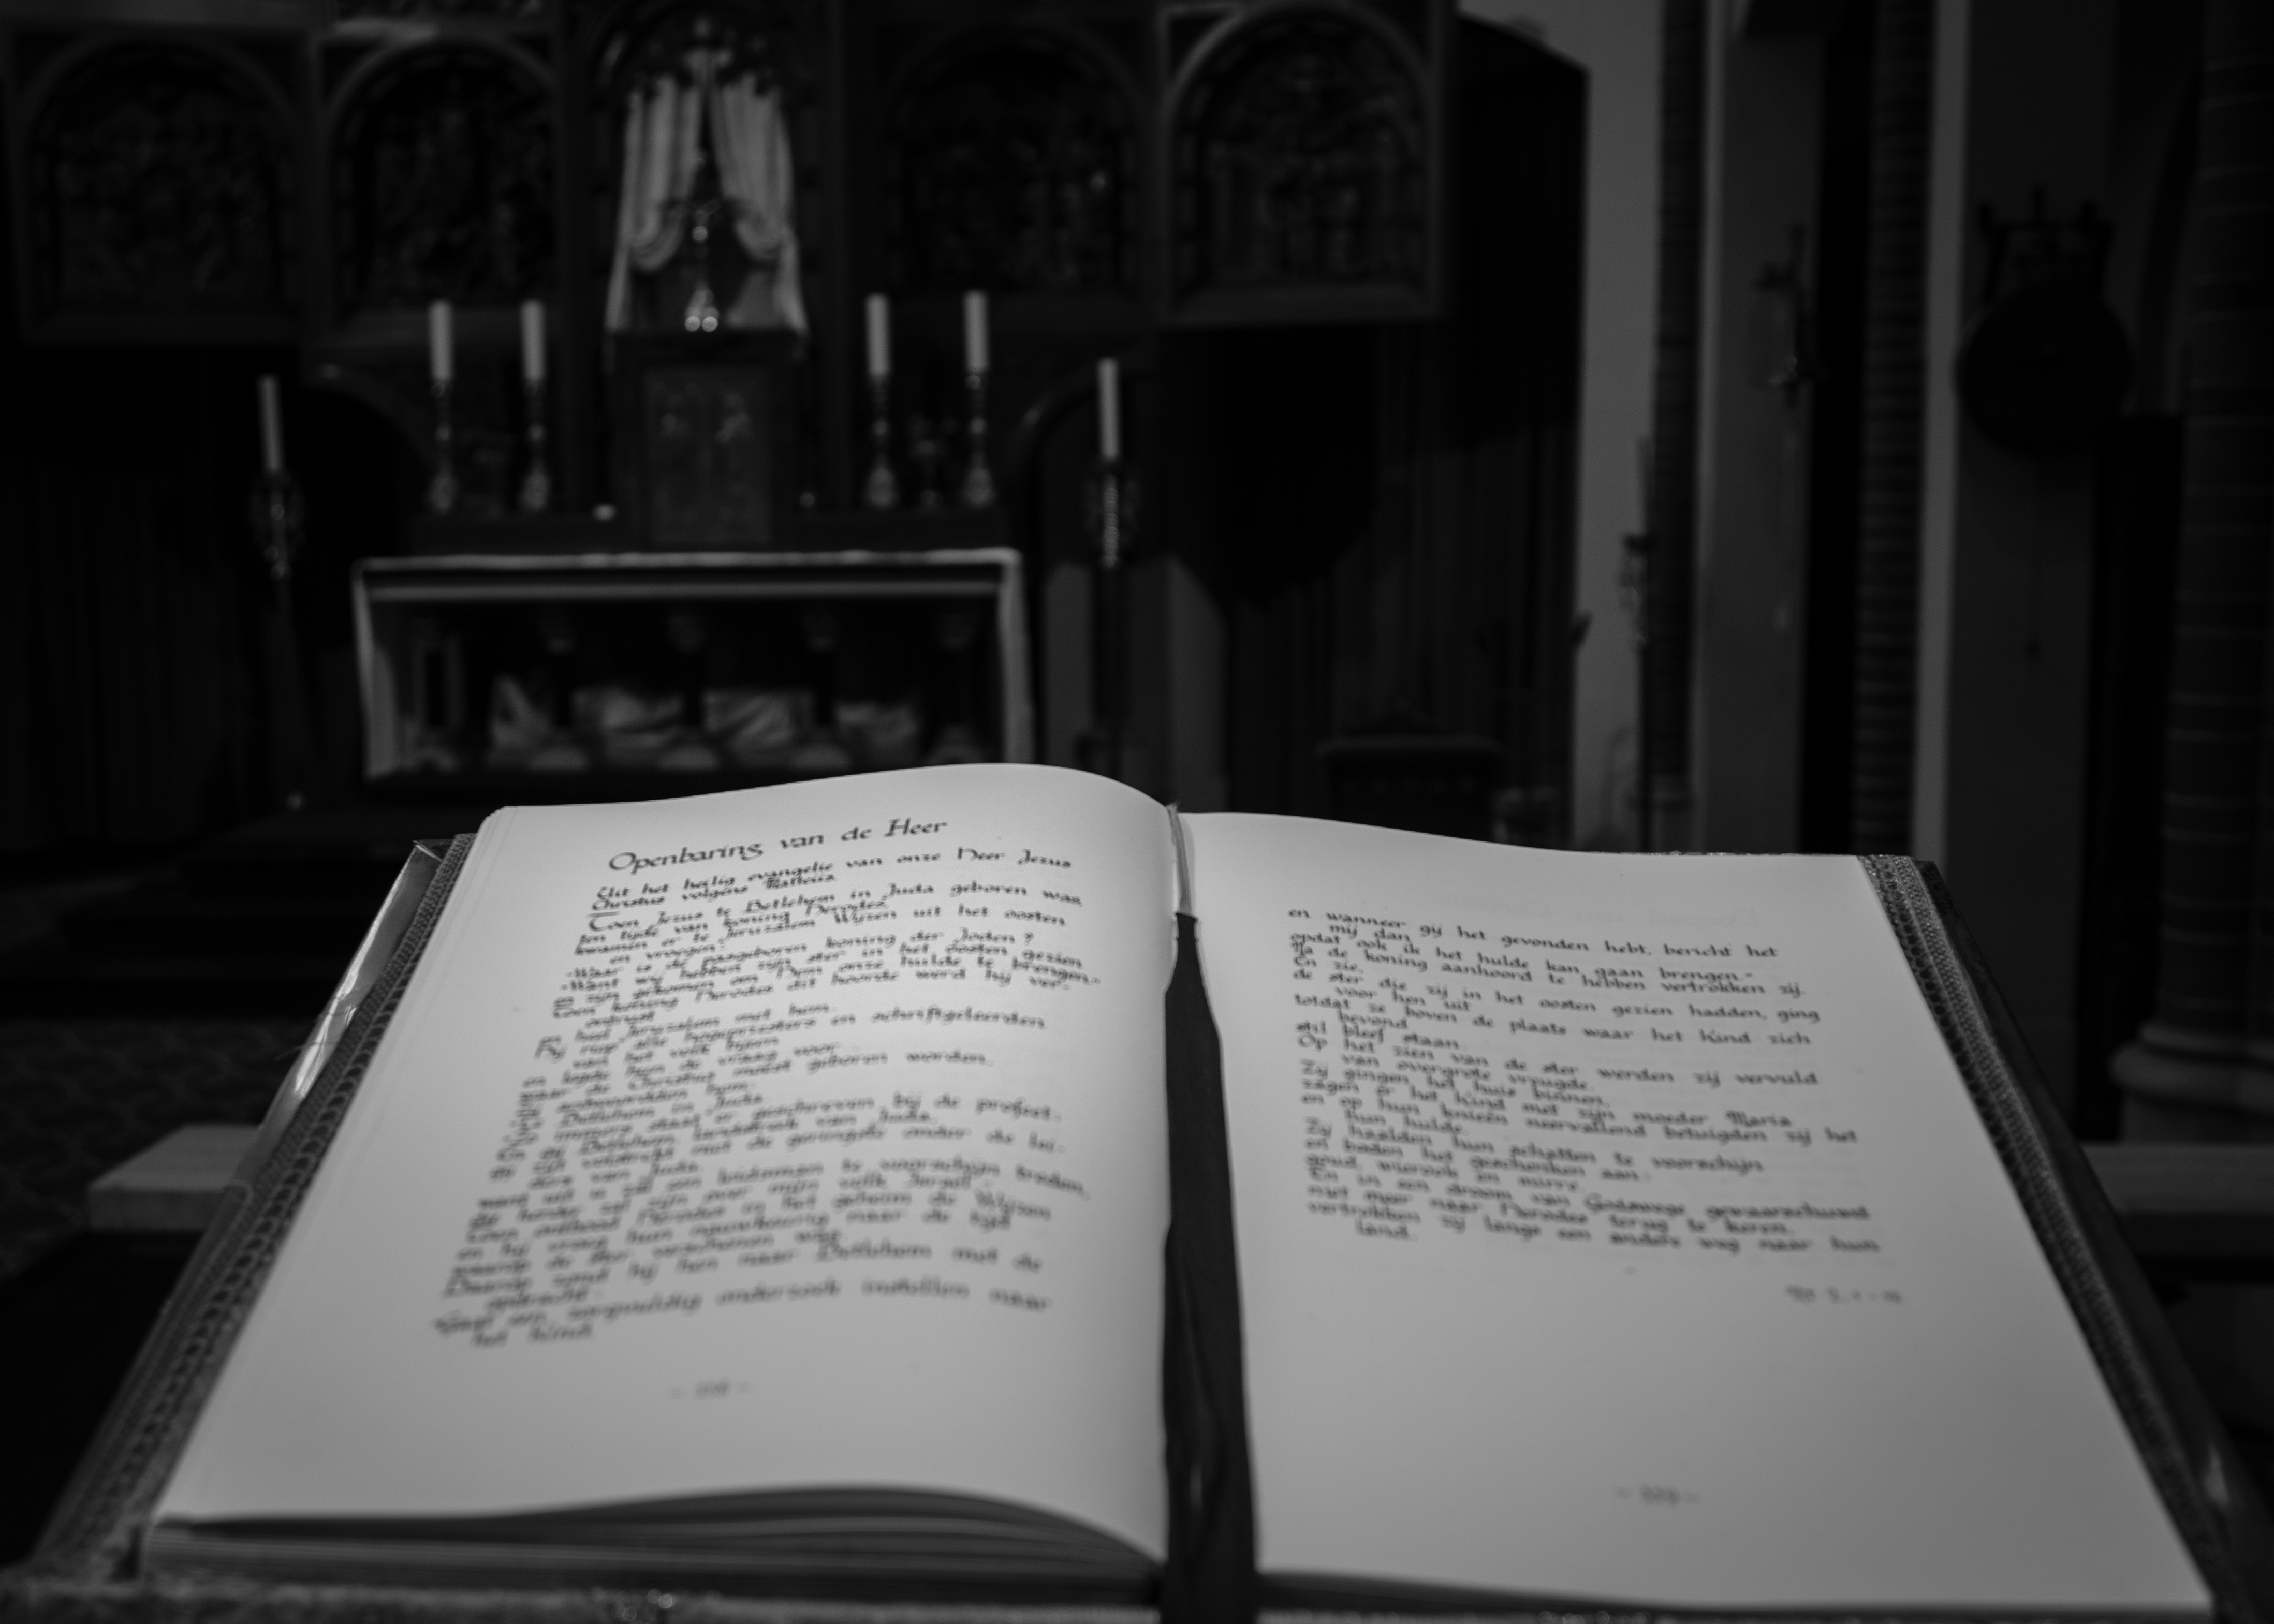 Openbaring van de Heer
Uit het heilig evangelie van onze Heer Jezus
Christus volgens Matteüs
Toen Jezus te Betlehem in Juda geboren was
ten tijde van koning Herodes,
kwamen er te Jeruzalem Wijzen uit het oosten
en vroegen:
"Waar is de pasgeboren koning der Joden?
"Want wij hebben zijn ster in het oosten gezien
en zijn gekomen om Hem onze hulde te brengen."
Toen koning Herodes dit hoorde werd hij ver-
ontrust
en heel Jeruzalem met hem.
Hij riep alle hogepriesters en schriftgeleerden
van het volk bijeen
en legde hun de vraag voor
waar de Christus moest geboren worden.
Zij antwoordden hem:
Betlehem in Juda
immers staat er geschreven bij de profeet:
En gij Betlehem, landstreek van Juda,
gij zijt volstrekt niet de geringste onder de lei-
ders van Juda
want uit u zal een leidsman te voorschijn treden,
die herder zal zijn over mijn volk Israël."
Toen ontbood Herodes in het geheim de Wijzen
en hij vroeg hun nauwkeurig naar de tijd
waarop de ster verschenen was.
Daarop zond hij hen naar Betlehem met de
opdracht:
Gaat een zorgvuldig onderzoek instellen naar
het Kind.
en wanneer gij het gevonden hebt, bericht het
mij dan
opdat ook ik het hulde kan gaan brengen."
Na de koning aanhoord te hebben vertrokken zij.
En zie,
de ster die zij in het oosten gezien hadden, ging
voor hen uit
totdat ze boven de plaats waar het Kind zich
bevond
stil bleef staan.
Op het zien van de ster werden zij vervuld
van overgrote vreugde.
Zij gingen het huis binnen,
zagen er het Kind met zijn moeder Maria
en op hun knieën neervallend betuigden zij het
hun hulde.
Zij haalden hun schatten te voorschijn
en boden het geschenken aan:
goud, wierook en mirre.
En in een droom van Godswege gewaarschuwd
niet meer naar Herodes terug te keren,
vertrokken zij langs een andere weg naar hun
land.